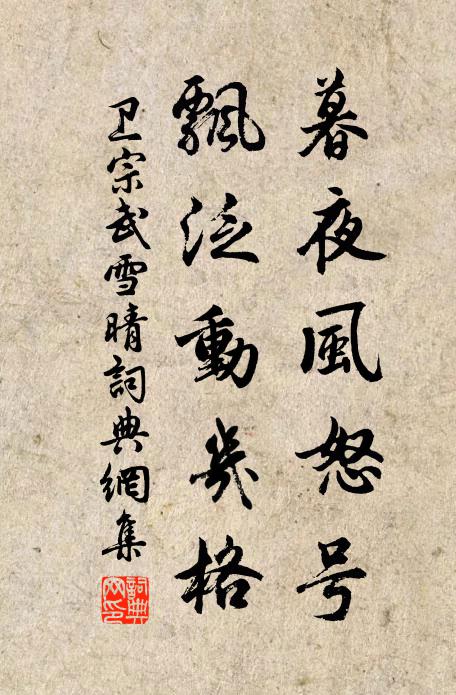 暮夜風怒号
飄泛動幾格
卫宗武雪晴詞典網集
詞典